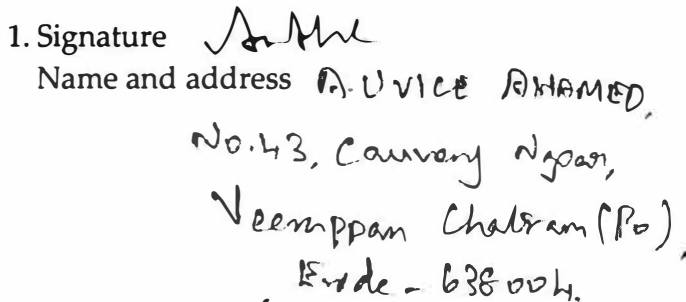 1. Signature
Name and address A. UVICE AHAMED,
No.43, Cauvery Nagar,
Veerappan Chatram (Po),
Erode - 638004.